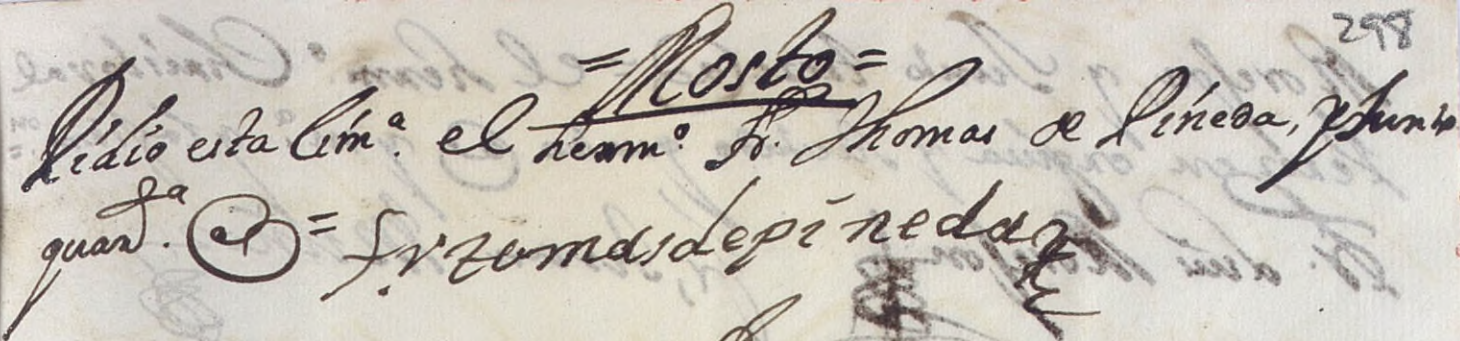 298
= Mosto =
Pidio esta lim.ª el herm.º Fr. Thomas de Pineda, y
quand.ª @ = fr tomas de pineda